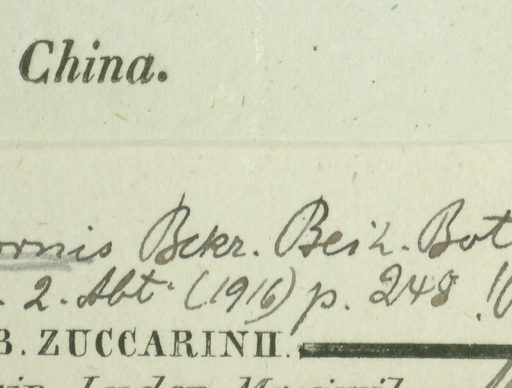 China.
Bckr. Beih. Bot
2. Abt. (1916) p. 248
B. ZUCCARINII.